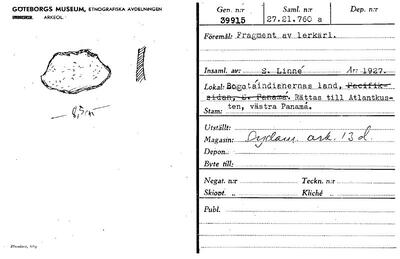 GÖTEBORGS MUSEUM, ETNOGRAFISKA AVDELNINGEN
ARKEOL.
8,5
Gen. n:r 39915
Saml. n:r 27.21.760 a
Dep. n:r
Föremål: Fragment av lerkärl.
Insaml. av: S. Linné År: 1927.
Lokal: Bogatáindianernas land, Pacifik-
sidan, S. Panamá. Rättas till Atlantkus-
Stam: ten, västra Panamá.
Utställt:
Magasin: ark. 13 d.
Depon.
Byte till:
Negat. n:r Teckn. n:r
Skiopt. „ Kliché „
Publ.